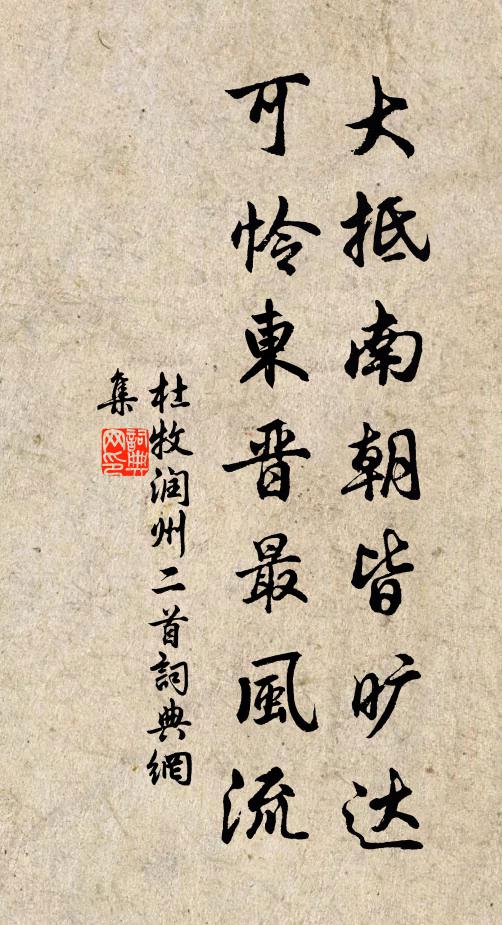 大抵南朝皆旷达
可怜東晋最風流
杜牧润州二首詞典網
集
詞典
网印